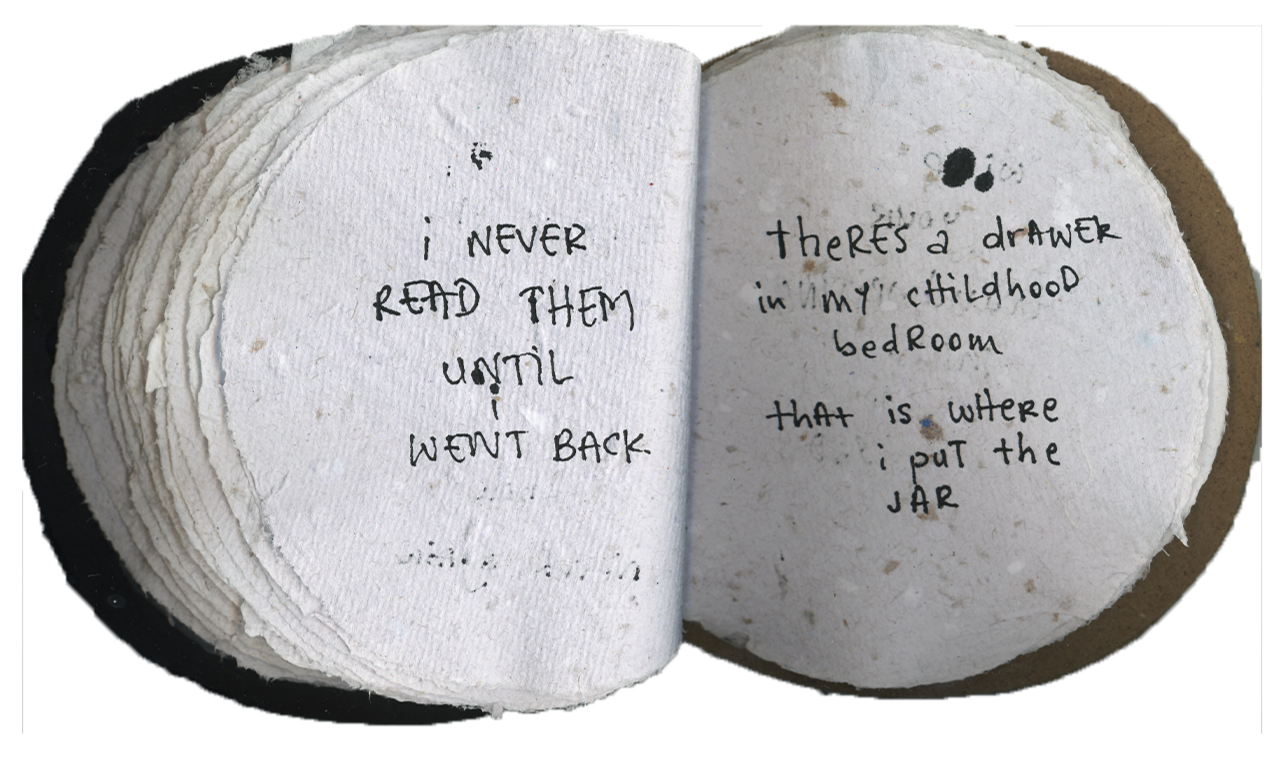 i NEVER
READ THEM
UNTiL
i
WENT BACK.
theREs a drAWER
in my cHiLdhooD
bedRoom
thAt is wHeRe
i puT the
JAR